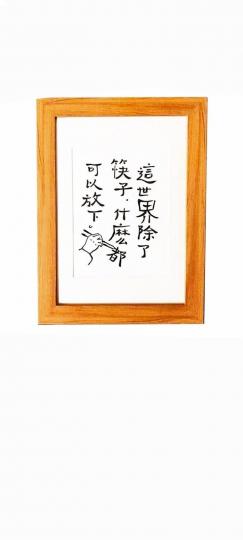 這世界除了
筷子·什麼都
可以放下。